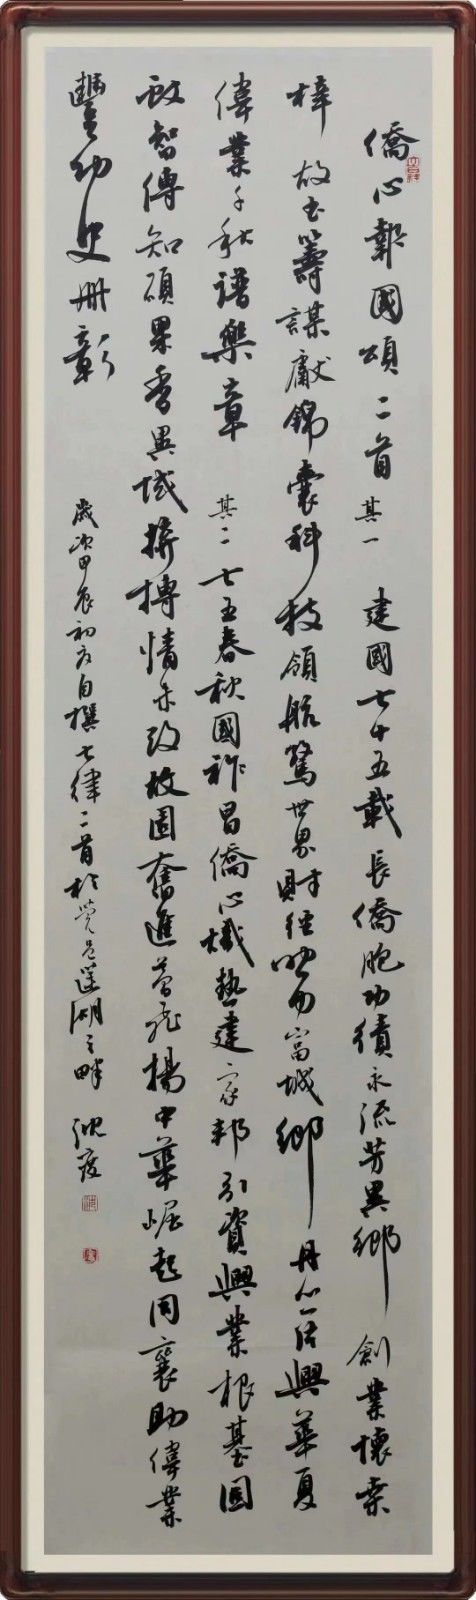 僑心報國頌二首 其一 建國七十五載長僑胞功績永流芳異鄉創業懷桑
梓故土籌謀獻錦囊科技領航驚世界財經助力富城鄉丹心興華夏
偉業千秋譜樂章 其二 七五春秋國祚昌僑心熾熱建家邦引資興業根基固
啟智傳知碩果香異域拼搏情未改故園奮進夢飛揚中華崛起同襄助偉業
豐功史冊彰 歲次甲辰初自撰七律二首於莞邑蓮湖之畔 度